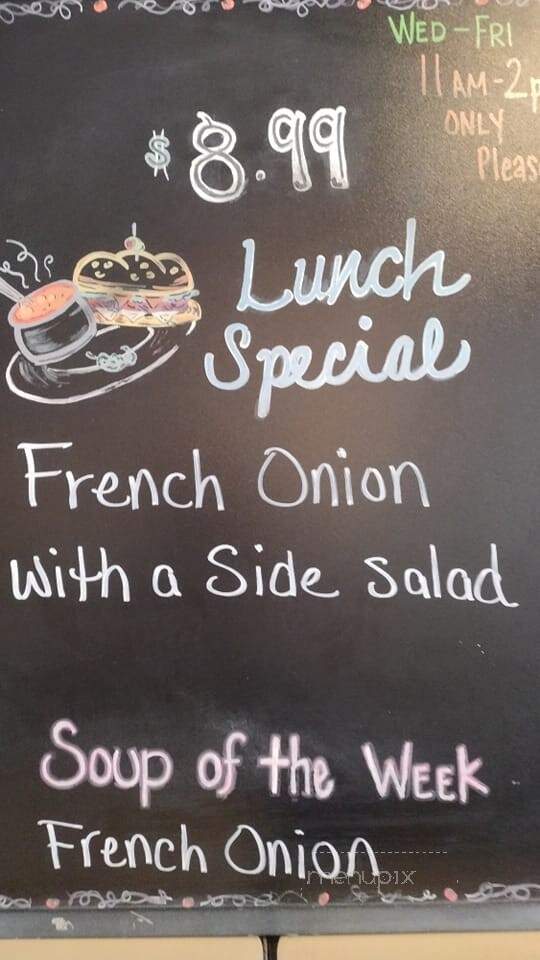 WED-FRI
11 AM-2p
ONLY
Pleas
$8.99
Lunch
Special
French Onion
with a Side Salad
Soup of the WEEK
French Onion
menupix